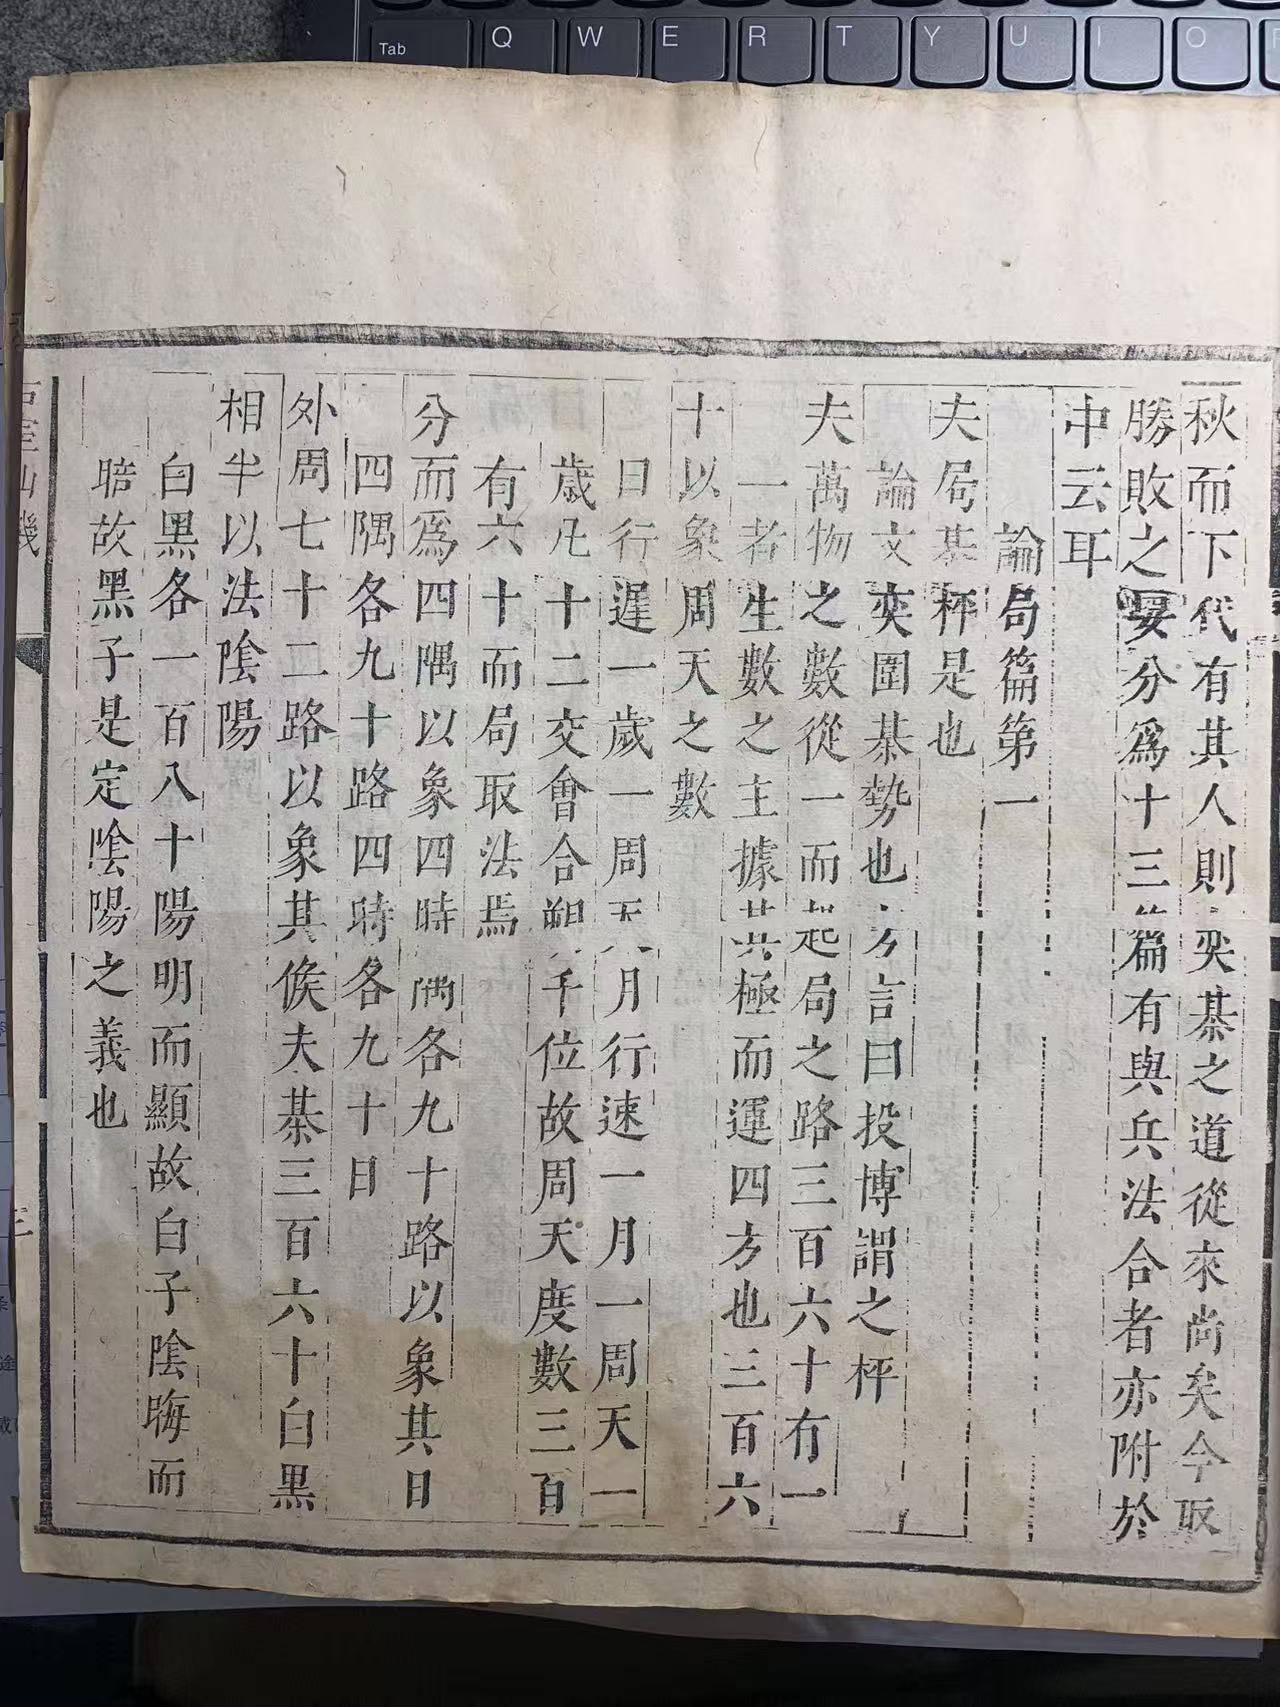 秋而下代有其人則奕棊之道從來尚矣今取
勝敗之要分爲十三篇有與兵法合者亦附於
中云耳
論局篇第一
夫局棊枰是也
論文奕圍棊勢也方言曰投博謂之枰
夫萬物之數從一而起局之路三百六十有一
一者生數之主據其極而運四方也三百六
十以象周天之數
日行遲一歲一周天月行速一月一周天一
歲凡十二交會合朔于位故周天度數三百
有六十而局取法焉
分而爲四隅以象四時隅各九十路以象其日
四隅各九十路四時各九十日
外周七十二路以象其候夫棊三百六十白黑
相半以法陰陽
白黑各一百八十陽明而顯故白子陰晦而
暗故黑子是定陰陽之義也
石室仙機
Tab Q W E R T Y U I O